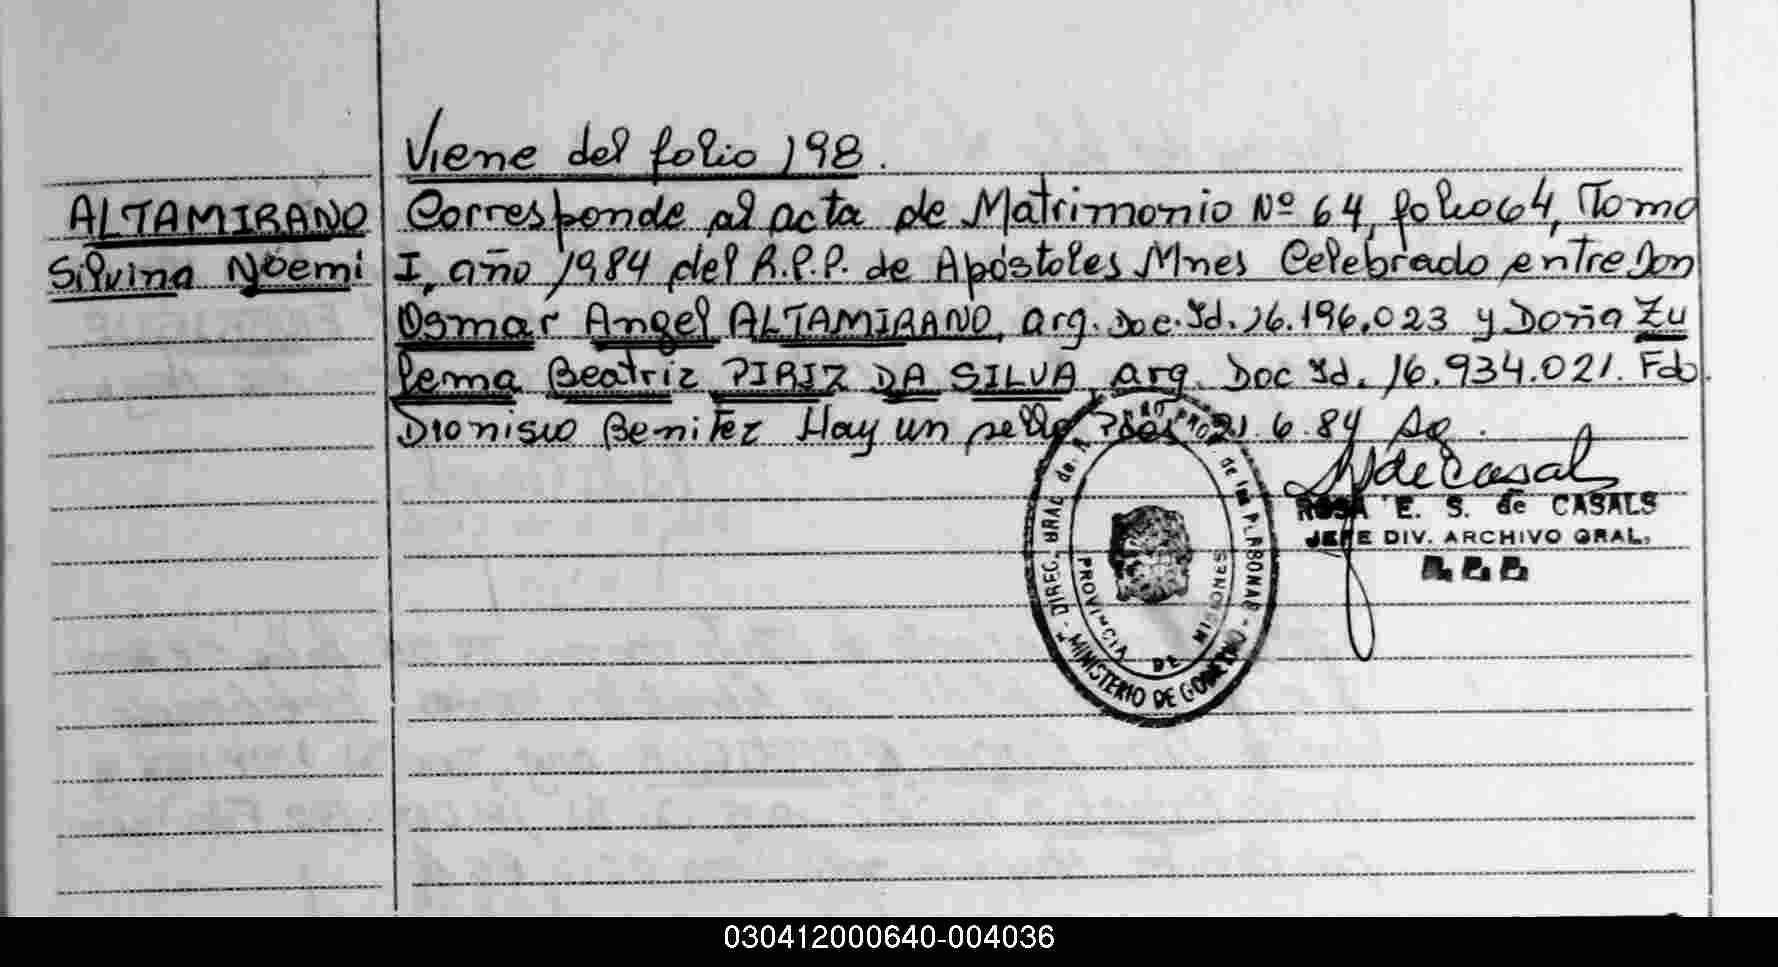 Viene del folio 198.
ALTAMIRANO
Silvina Noemi
Corresponde al acta de Matrimonio Nº 64, folio 64, Tomo
I, año 1984 del R.P.P. de Apóstoles Mnes Celebrado entre Don
Osmar Angel ALTAMIRANO, arg. Doc. Id. 16.196.023 y Doña Zu
lema Beatriz PIRIZ DA SILVA, arg. Doc Id. 16.934.021. Fdo.
Dionisio Benitez Hay un sello 21.6.84
ROSA E. S. de CASALS
JEFE DIV. ARCHIVO GRAL.
PROVINCIA DE MISIONES
MINISTERIO DE GOBIERNO
030412000640-004036